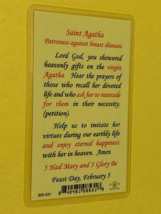 Saint Agatha
Patroness against breast disease
Lord God, you showered
heavenly gifts on the virgin
Agatha. Hear the prayers of
those who recall her devoted
life and who ask her to intercede
for them in their necessity.
(petition).
Help us to imitate her
virtues during our earthly life
and enjoy eternal happiness
with her in heaven. Amen
5 Hail Mary and 5 Glory Be
Feast Day, February 5